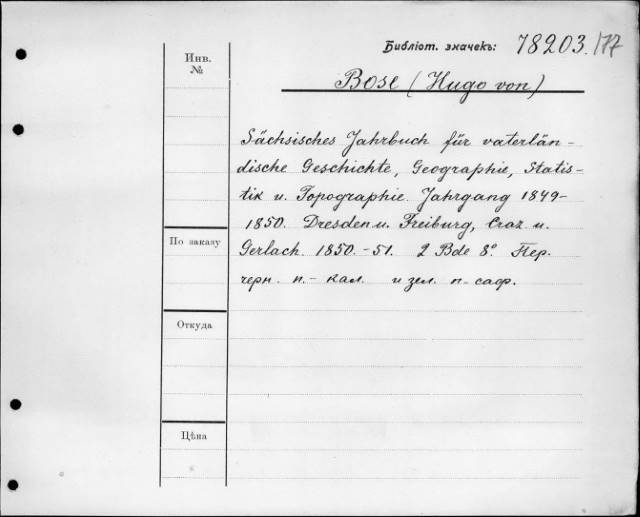 Библіот. значекъ: 78203./77
Инв.
№
Bose (Hugo von)
Sächsisches Jahrbuch für vaterlän-
dische Geschichte, Geographie, Statis-
tik u. Topographie. Jahrgang 1849-
1850. Dresden u. Freiburg, Craz u.
Gerlach. 1850.-51. 2 Bde 8º. Пер.
черн. п.- кал. и зел. п-саф.
По заказу
Откуда
Цѣна